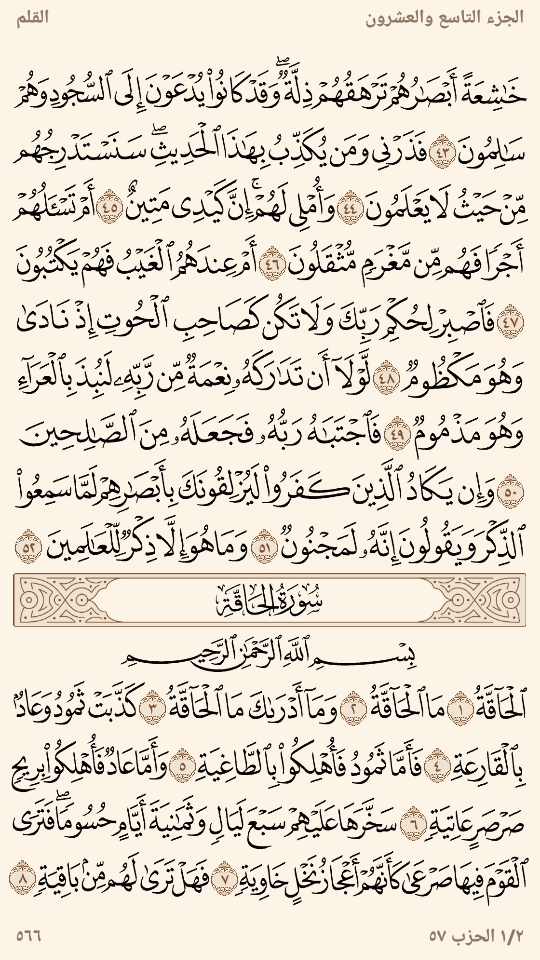 الجزء التاسع والعشرون
القلم
خَٰشِعَةً أَبْصَٰرُهُمْ تَرْهَقُهُمْ ذِلَّةٌۖ وَقَدْ كَانُوا۟ يُدْعَوْنَ إِلَى ٱلسُّجُودِ وَهُمْ
سَٰلِمُونَ ٤٣ فَذَرْنِى وَمَن يُكَذِّبُ بِهَٰذَا ٱلْحَدِيثِۖ سَنَسْتَدْرِجُهُم
مِّنْ حَيْثُ لَا يَعْلَمُونَ ٤٤ وَأُمْلِى لَهُمْۚ إِنَّ كَيْدِى مَتِينٌ ٤٥ أَمْ تَسْـَٔلُهُمْ
أَجْرًا فَهُم مِّن مَّغْرَمٍ مُّثْقَلُونَ ٤٦ أَمْ عِندَهُمُ ٱلْغَيْبُ فَهُمْ يَكْتُبُونَ
٤٧ فَٱصْبِرْ لِحُكْمِ رَبِّكَ وَلَا تَكُن كَصَاحِبِ ٱلْحُوتِ إِذْ نَادَىٰ
وَهُوَ مَكْظُومٌ ٤٨ لَّوْلَآ أَن تَدَٰرَكَهُۥ نِعْمَةٌ مِّن رَّبِّهِۦ لَنُبِذَ بِٱلْعَرَآءِ
وَهُوَ مَذْمُومٌ ٤٩ فَٱجْتَبَٰهُ رَبُّهُۥ فَجَعَلَهُۥ مِنَ ٱلصَّٰلِحِينَ
٥٠ وَإِن يَكَادُ ٱلَّذِينَ كَفَرُوا۟ لَيُزْلِقُونَكَ بِأَبْصَٰرِهِمْ لَمَّا سَمِعُوا۟
ٱلذِّكْرَ وَيَقُولُونَ إِنَّهُۥ لَمَجْنُونٌ ٥١ وَمَا هُوَ إِلَّا ذِكْرٌ لِّلْعَٰلَمِينَ ٥٢
سُورَةُ الحَاقَّةِ
بِسْمِ ٱللَّهِ ٱلرَّحْمَٰنِ ٱلرَّحِيمِ
ٱلْحَآقَّةُ ١ مَا ٱلْحَآقَّةُ ٢ وَمَآ أَدْرَىٰكَ مَا ٱلْحَآقَّةُ ٣ كَذَّبَتْ ثَمُودُ وَعَادٌۢ
بِٱلْقَارِعَةِ ٤ فَأَمَّا ثَمُودُ فَأُهْلِكُوا۟ بِٱلطَّاغِيَةِ ٥ وَأَمَّا عَادٌ فَأُهْلِكُوا۟ بِرِيحٍ
صَرْصَرٍ عَاتِيَةٍ ٦ سَخَّرَهَا عَلَيْهِمْ سَبْعَ لَيَالٍ وَثَمَٰنِيَةَ أَيَّامٍ حُسُومًاۖ فَتَرَى
ٱلْقَوْمَ فِيهَا صَرْعَىٰ كَأَنَّهُمْ أَعْجَازُ نَخْلٍ خَاوِيَةٍ ٧ فَهَلْ تَرَىٰ لَهُم مِّنۢ بَاقِيَةٍ ٨
١/٢ الحزب ٥٧
٥٦٦